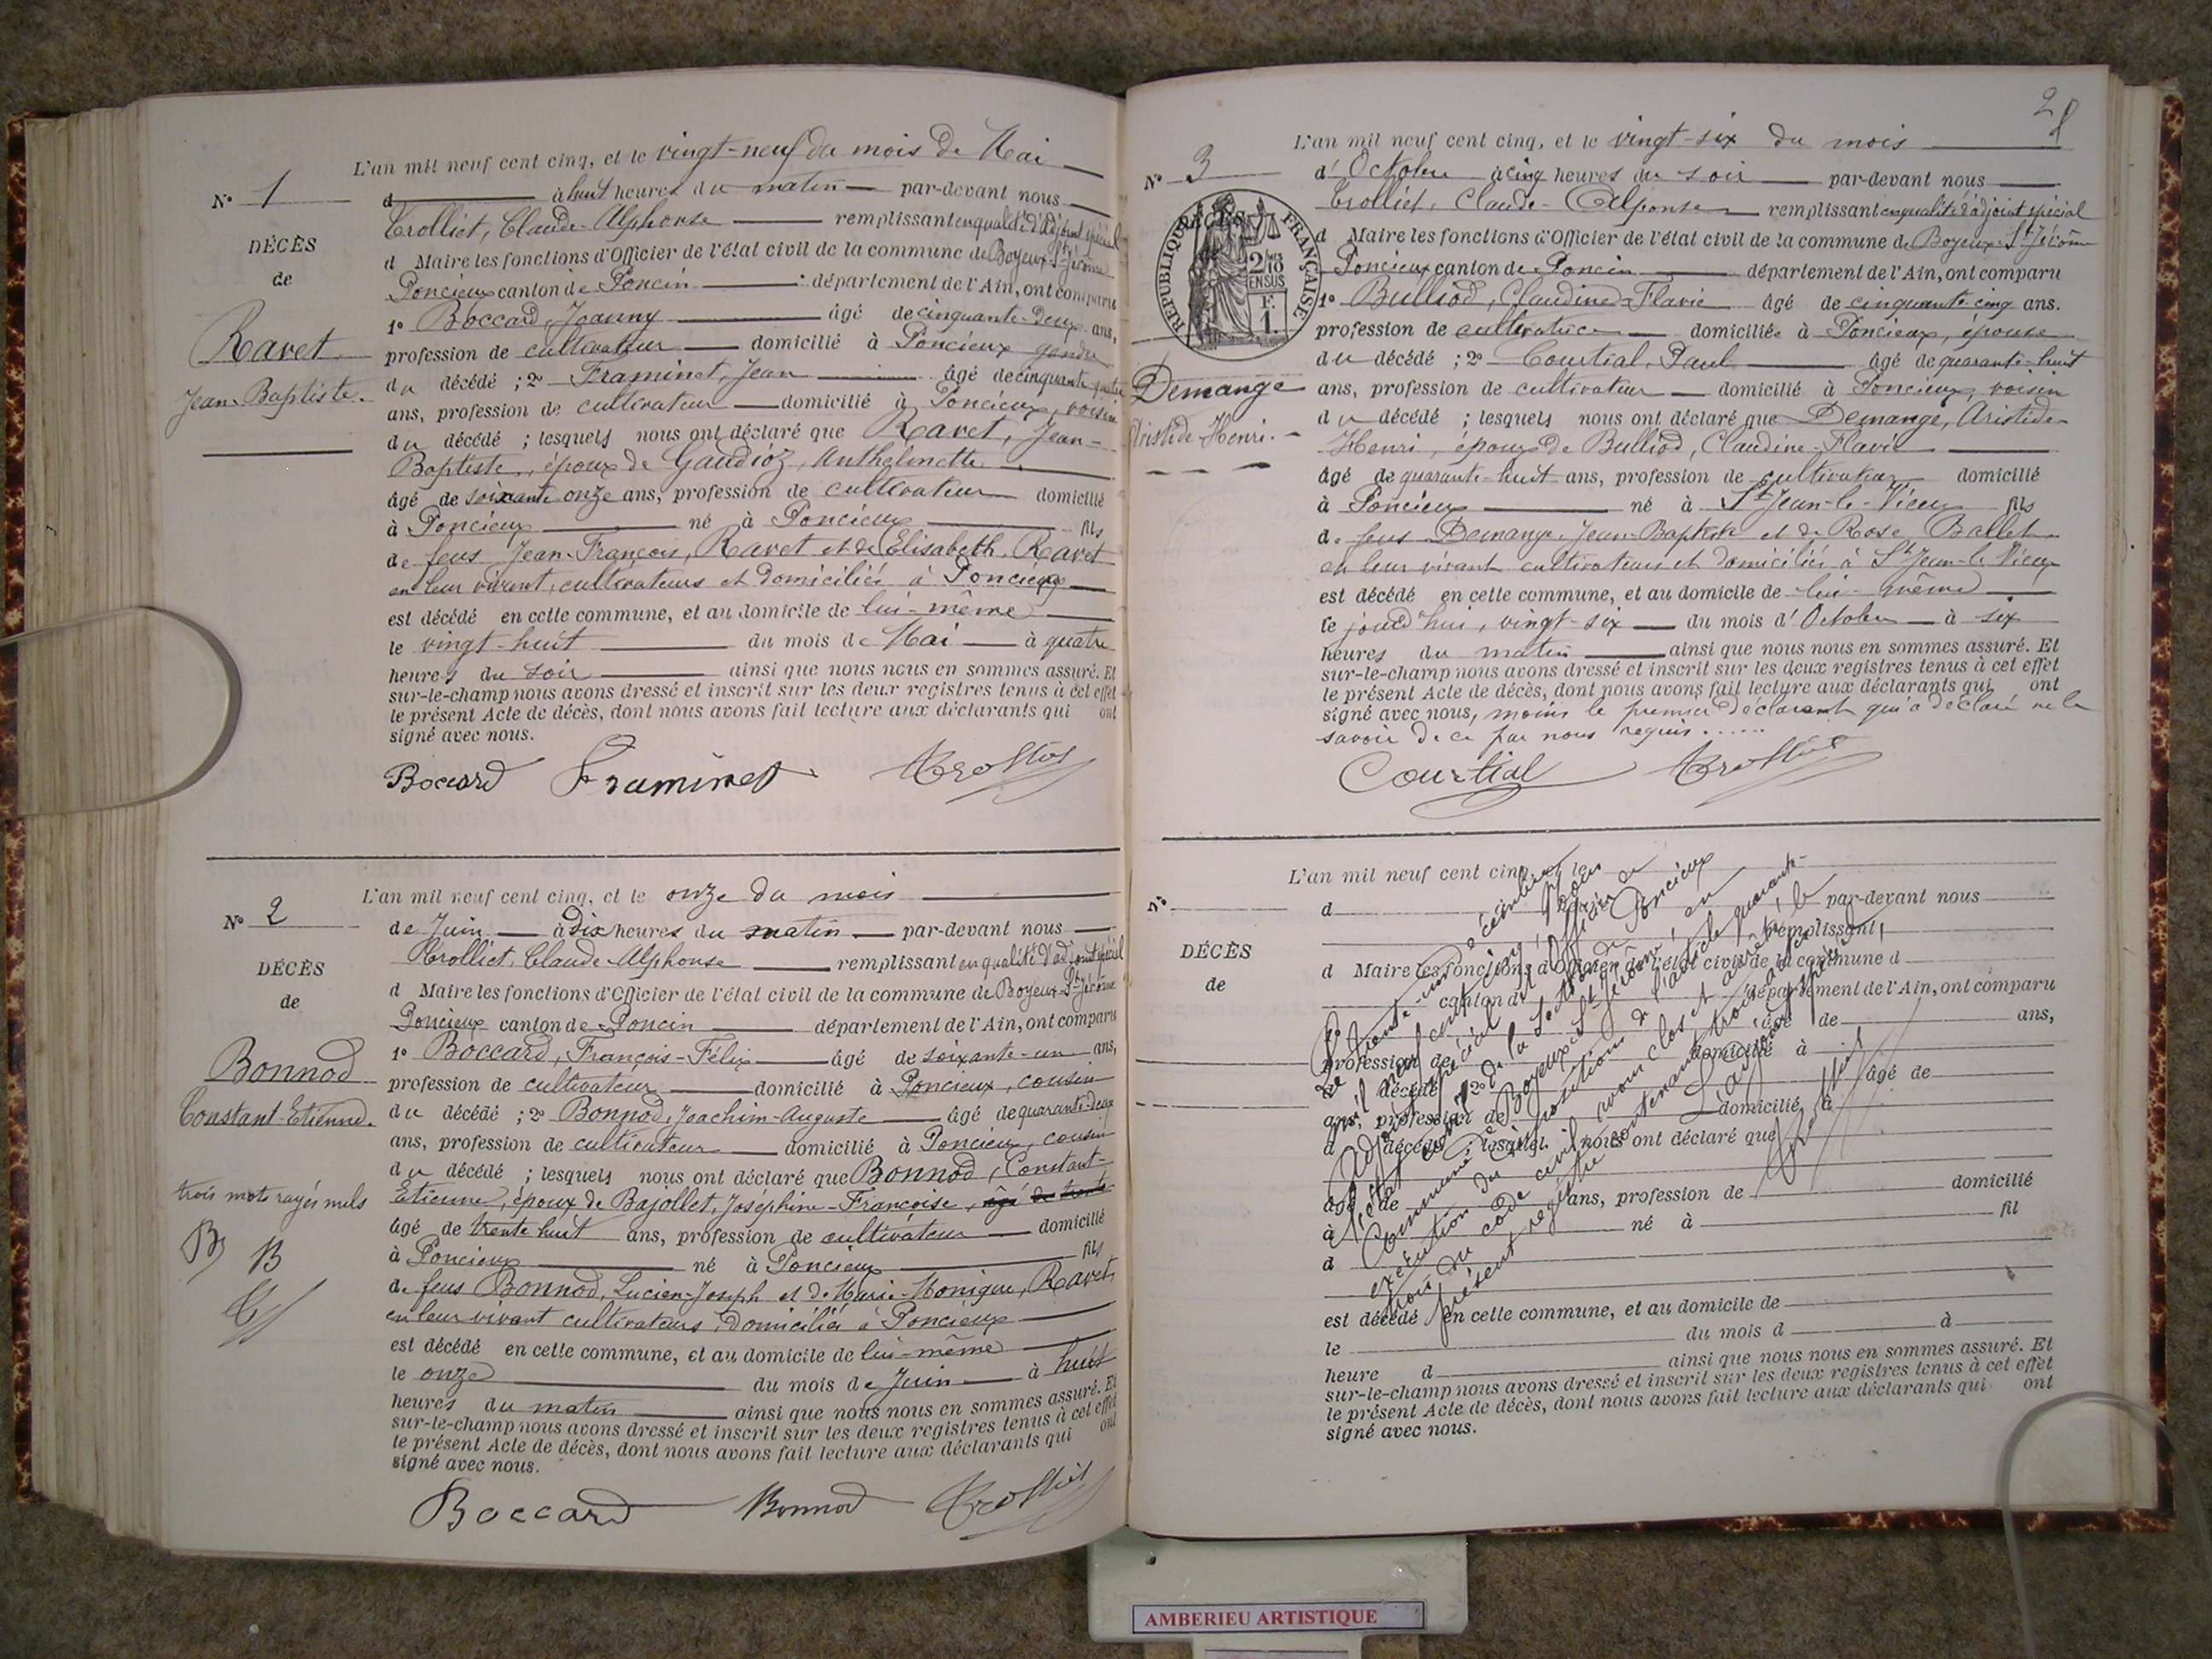 L'an mil neuf cent cinq, et le vingt-neuf du mois de Mai
N° 1
d à huit heures du matin par-devant nous
Trolliet, Claude-Alphonse remplissant en qualité d'adjoint spécial
DÉCÈS
d Maire les fonctions d'Officier de l'état civil de la commune de Boyeux-St-Jérôme
de
Poncieux canton de Poncin département de l'Ain, ont comparu
1° Boccard, Joanny âgé de cinquante-deux ans,
Ravet
profession de cultivateur domicilié à Poncieux gendre
Jean-Baptiste.
du décédé ; 2° Framinet, Jean âgé de cinquante quatre
ans, profession de cultivateur domicilié à Poncieux, voisin
du décédé ; lesquels nous ont déclaré que Ravet, Jean-
Baptiste, époux de Gaudioz, Anthelmette
âgé de soixante onze ans, profession de cultivateur domicilié
à Poncieux né à Poncieux fils
de feus Jean-François, Ravet et de Elisabeth, Ravet
en leur vivant, cultivateurs et domiciliés à Poncieux
est décédé en cette commune, et au domicile de lui-même
le vingt-huit du mois de Mai à quatre
heures du soir ainsi que nous nous en sommes assuré. Et
sur-le-champ nous avons dressé et inscrit sur les deux registres tenus à cet effet
le présent Acte de décès, dont nous avons fait lecture aux déclarants qui ont
signé avec nous.
Boccard Framinet Trolliet
L'an mil neuf cent cinq, et le onze du mois
N° 2
de Juin à Dix heures du matin par-devant nous
Trolliet, Claude-Alphonse remplissant en qualité d'adjoint spécial
DÉCÈS
d Maire les fonctions d'Officier de l'état civil de la commune de Boyeux-St-Jérôme
de
Poncieux canton de Poncin département de l'Ain, ont comparu
1° Boccard, François-Félix âgé de soixante-un ans,
Bonnod
profession de cultivateur domicilié à Poncieux, cousin
Constant-Etienne.
du décédé ; 2° Bonnod, Joachim-Auguste âgé de quarante-deux
ans, profession de cultivateur domicilié à Poncieux, cousin
du décédé ; lesquels nous ont déclaré que Bonnod, Constant-
trois mots rayés nuls
Etienne, époux de Bajollet, Joséphine-Françoise, âgé de trente
âgé de trente huit ans, profession de cultivateur domicilié
B B
à Poncieux né à Poncieux fils
de feus Bonnod, Lucien-Joseph et de Marie-Monique, Ravet
en leur vivant cultivateurs, domiciliés à Poncieux
est décédé en cette commune, et au domicile de lui-même
le onze du mois de Juin à huit
heures du matin ainsi que nous nous en sommes assuré. Et
sur-le-champ nous avons dressé et inscrit sur les deux registres tenus à cet effet
le présent Acte de décès, dont nous avons fait lecture aux déclarants qui ont
signé avec nous.
Boccard Bonnod Trolliet
28
L'an mil neuf cent cinq, et le vingt-six du mois
N° 3
d'Octobre à cinq heures du soir par-devant nous
Trolliet, Claude-Alphonse remplissant en qualité d'adjoint spécial
DÉCÈS
RÉPUBLIQUE FRANÇAISE
2/10 EN SUS
F. 1.
d Maire les fonctions d'Officier de l'état civil de la commune de Boyeux-St-Jérôme
Poncieux canton de Poncin département de l'Ain, ont comparu
1° Bulliod, Claudine-Flavie âgé de cinquante-cinq ans.
profession de cultivatrice domiciliée à Poncieux, épouse
du décédé ; 2° Courtial, Paul âgé de quarante-huit
Demange
ans, profession de cultivateur domicilié à Poncieux, voisin
Aristide-Henri.
du décédé ; lesquels nous ont déclaré que Demange, Aristide-
Henri, époux de Bulliod, Claudine-Flavie
âgé de quarante-huit ans, profession de cultivateur domicilié
à Poncieux né à St-Jean-le-Vieux fils
de feus Demange, Jean-Baptiste et de Rose Ballet
en leur vivant cultivateurs et domiciliés à St Jean-le Vieux
est décédé en cette commune, et au domicile de lui-même
le jourd'hui, vingt-six du mois d'Octobre à six
heures du matin ainsi que nous nous en sommes assuré. Et
sur-le-champ nous avons dressé et inscrit sur les deux registres tenus à cet effet
le présent Acte de décès, dont nous avons fait lecture aux déclarants qui ont
signé avec nous, moins le premier déclarant qui a déclaré ne le
savoir de ce par nous requis......
Courtial Trolliet
L'an mil neuf cent cinq, et le
N°
d par-devant nous
remplissant
DÉCÈS
d Maire les fonctions d'Officier de l'état civil de la commune d
de
canton d département de l'Ain, ont comparu
1° âgé de ans,
profession de domicilié à
d décédé ; 2° âgé de
ans, profession de domicilié à
d décédé ; lesquel nous ont déclaré que
âgé de ans, profession de domicilié
à né à fil
d
est décédé en cette commune, et au domicile de
le du mois d à
heure d ainsi que nous nous en sommes assuré. Et
sur-le-champ nous avons dressé et inscrit sur les deux registres tenus à cet effet
le présent Acte de décès, dont nous avons fait lecture aux déclarants qui ont
signé avec nous.
Le trente-un décembre
mil neuf cent cinq, Nous
Adjoint spécial et Officier de
l'état civil de la section de Poncieux
Commune de Boyeux-St-Jérôme, en
exécution des dispositions de l'article quarante-
trois du code civil avons clos et arrêté le
présent registre contenant trois actes
Trolliet
AMBERIEU ARTISTIQUE